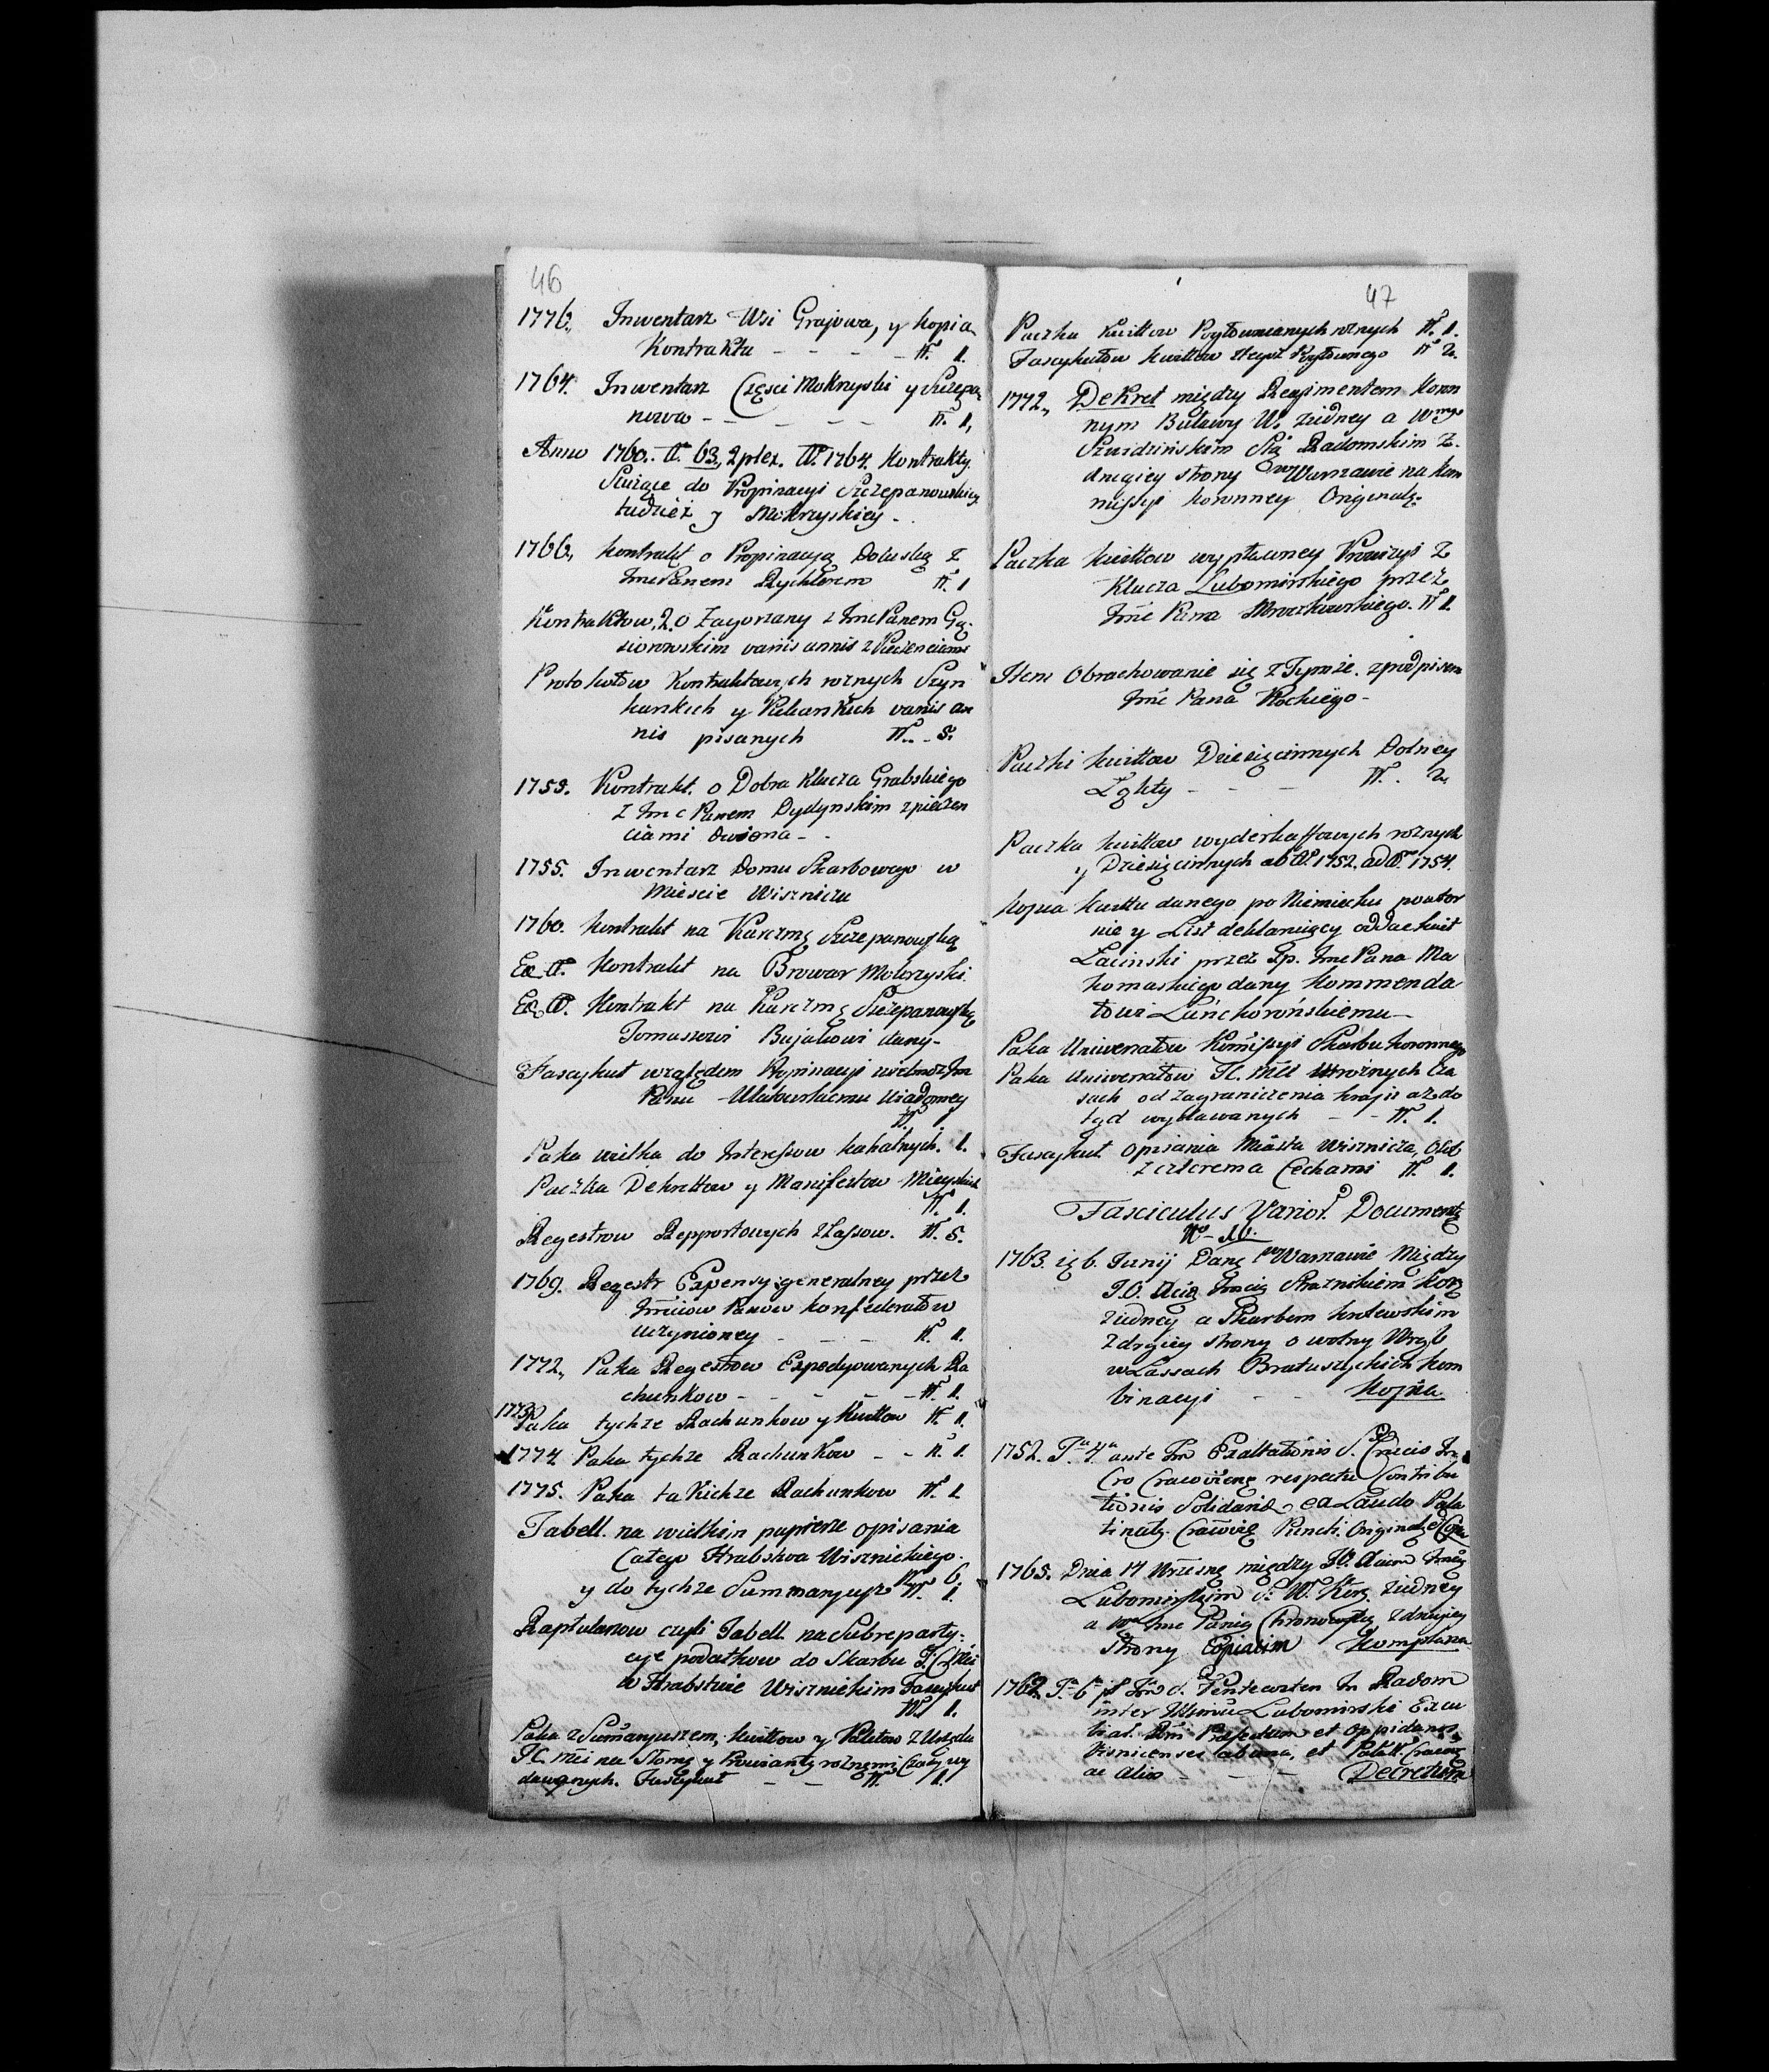 46
1776. Inwentarz Wsi Grajowa, y kopia
Kontraktu - - - - N. 1.
1764. Inwentarz Części Mokrzyski y Szczepa
nowa - - - - - N. 1.
Anno 1760. A. 63, 2plex. A. 1764. Kontrakty
Służące do Propinacyi Szczepanowskiey
tudzież y Mokrzyskiey -
1766. Kontrakt o Propinacyą Doluską z
Imc Panem Rychterem N. 1
Kontraktow, 2. o Zagorzany z Imc Panem Gą-
siorowskim variis annis z Pieczenciami
Protokułow Kontraktowych roznych Szyn
karskich y variis an
nis pisanych N. - 5.
1753. Kontrakt o Dobra Klucza Grabskiego
z Imc Panem Dydynskim z pieczen
ciami dwiema -
1755. Inwentarz Domu Skarbowego w
Mieście Wiszniczu
1760. Kontrakt na Karczmę Szczepanowską
Eo A. Kontrakt na Browar Mokrzyski
Eo A. Kontrakt na Karczmę Szczepanowską
Tomaszowi Bujakowi dany -
Fascykuł względem Propinacyi wielmoz Im
Panu Ulatowskiemu wiadomey
N. 1.
Paka wielka do Interessow kahalnych. 1.
Paczka Dekretow y Manifestow Mieyskich
N. 1.
Regestrow Repportowych z Lassow. N. 5.
1769. Regestr Expensy generalney przez
Imciow Panow Konfederatow
uczynioney - - - N. 1.
1772. Paka Regestrow Expedyowanych Ra
chunkow - - - - N. 1.
1773. Paka tychze Rachunkow y Kwitow N. 1.
1774 Paka tychze Rachunkow - - N. 1.
1775. Paka takichze Rachunkow N. 1.
Tabell. na wielkim papierze opisania
Całego Hrabstwa Wisznickiego. N. 6
y do tychze Summaryusz N. 1.
Raptularzow czyli Tabell. na Subreparty-
cye podatkow do Skarbu
w Hrabstwie Wisznickim Fascykuł
N. 1.
Paka z Sumaryuszem, kwitow y Paletow z Urzędu
na Słomę y Prowianty roznemi Czasy wy
dawanych. Fascykuł - - N. 1.
47
Paczka Kwitow Pogłownianych roznych N. 1.
Fascykułow kwitow Pogłownego N. 2.
1772. Dekret między Regimentem Koron
nym Buławy W. z iedney a Wmym
Radomskim z
drugiey strony w Warszawie na kom
missyi koronney Originalę.
Paczka kwitow wypłaconey Prowizyi z
Klucza Lubomirskiego przez
Imć Pana Mroczkowskiego. N. 1.
Item Obrachowanie się z Tymże. z podpisem
Imć Pana Rockiego -
Paczki kwitow Dziesięcinnych Dolney
- - - N. 2.
Paczka kwitow wyderkaffowych roznych
y Dziesięcinnych ab A. 1752. ad A. 1754.
Kopia kwitu danego po Niemiecku powtor
nie y List deklaruiący oddać kwit
Łacinski przez Śp. Imc Pana Ma
komaskiego dany Kommenda
towi Lanckorońskiemu -
Paka Uniwersałow Komissyi Skarbu koronnego
Paka Uniwersałow w roznych cza
sach od zagraniczenia kraju aż do
tąd wydawanych - - N. 1.
Fascykuł opisania Miasta Wisznicza, Osob
z czterema Cechami N. 1.
Fasciculus Varior. Document.
No. 10.
1763. 6. Junij Dane w Warszawie Między
J.O. Xcią Imcią Strażnikiem Kor.
z iedney a Skarbem Krolewskim
z drugiey strony o wolny Wrąb
w Lassach Bratuszyckich Kom
binacyi - - Kopia
1752. F. 4. ante Fm Exaltationis S. Crucis In
Cro Cracovien. respectu Contribu
tionis Solidariae ex Laudo Pala
tinatus Cracoviensis Originale
1765. Dnia 17 Wrzesnia między Xciem Imcią
Lubomirskim S. W. Kor. z iedney
a Imc Panią Chronowską z drugiey
strony Copiatim Komplana
1762. F. 6. p. Fm S. Pentecosten In Radom
inter Lubomirski
Praefectum et Oppidanos
Visnicenses et
ac alios - - - Decretum